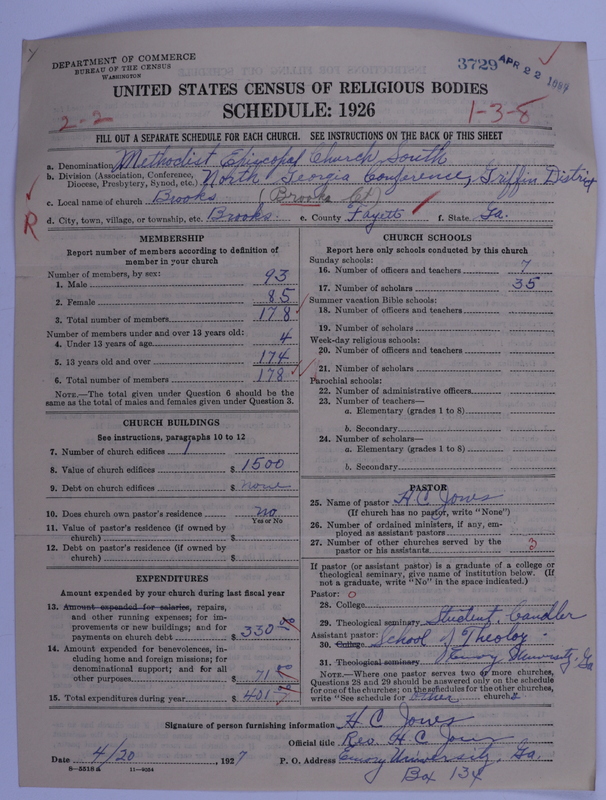 DEPARTMENT OF COMMERCE
BUREAU OF THE CENSUS
WASHINGTON
3729 APR 22
UNITED STATES CENSUS OF RELIGIOUS BODIES
SCHEDULE: 1926
2-2
1-3-8
FILL OUT A SEPARATE SCHEDULE FOR EACH CHURCH. SEE INSTRUCTIONS ON THE BACK OF THIS SHEET
a. Denomination Methodist Episcopal Church, South
b. Division (Association, Conference, Diocese, Presbytery, Synod, etc.) North Georgia Conference, Griffin District
c. Local name of church Brooks (Brooks Ct)
R
d. City, town, village, or township, etc. Brooks. e. County Fayette f. State Ga.
MEMBERSHIP
Report number of members according to definition of
member in your church
Number of members, by sex:
1. Male 93
2. Female 85
3. Total number of members 178
Number of members under and over 13 years old:
4. Under 13 years of age 4
5. 13 years old and over 174
6. Total number of members 178
NOTE.—The total given under Question 6 should be the
same as the total of males and females given under Question 3.
CHURCH BUILDINGS
See instructions, paragraphs 10 to 12
7. Number of church edifices 1
8. Value of church edifices $ 1500
9. Debt on church edifices $ none
10. Does church own pastor's residence? no
Yes or No
11. Value of pastor's residence (if owned by
church) $
12. Debt on pastor's residence (if owned by
church) $
EXPENDITURES
Amount expended by your church during last fiscal year
13. Amount expended for salaries, repairs,
and other running expenses; for im-
provements or new buildings; and for
payments on church debt $ 330 00
14. Amount expended for benevolences, in-
cluding home and foreign missions; for
denominational support; and for all
other purposes $ 71 00
15. Total expenditures during year $ 401 00
CHURCH SCHOOLS
Report here only schools conducted by this church
Sunday schools:
16. Number of officers and teachers 7
17. Number of scholars 35
Summer vacation Bible schools:
18. Number of officers and teachers
19. Number of scholars
Week-day religious schools:
20. Number of officers and teachers
21. Number of scholars
Parochial schools:
22. Number of administrative officers
23. Number of teachers—
a. Elementary (grades 1 to 8)
b. Secondary
24. Number of scholars—
a. Elementary (grades 1 to 8)
b. Secondary
PASTOR
25. Name of pastor H C Jones
(If church has no pastor, write "None")
26. Number of ordained ministers, if any, em-
ployed as assistant pastors
27. Number of other churches served by the
pastor or his assistants 3
If pastor (or assistant pastor) is a graduate of a college or
theological seminary, give name of institution below. (If
not a graduate, write "No" in the space indicated.)
Pastor: 0
28. College
29. Theological seminary Student, Candler
Assistant pastor:
30. College School of Theology -
31. Theological seminary Emory University, Ga
NOTE.—Where one pastor serves two or more churches,
Questions 28 and 29 should be answered only on the schedule
for one of the churches; on the schedules for the other churches,
write "See schedule for other church"
Signature of person furnishing information H C Jones
Official title Rev. H C Jones
Date 4/20, 1927 P. O. Address Emory University, Ga.
8-5518a 11-4064
Box 134